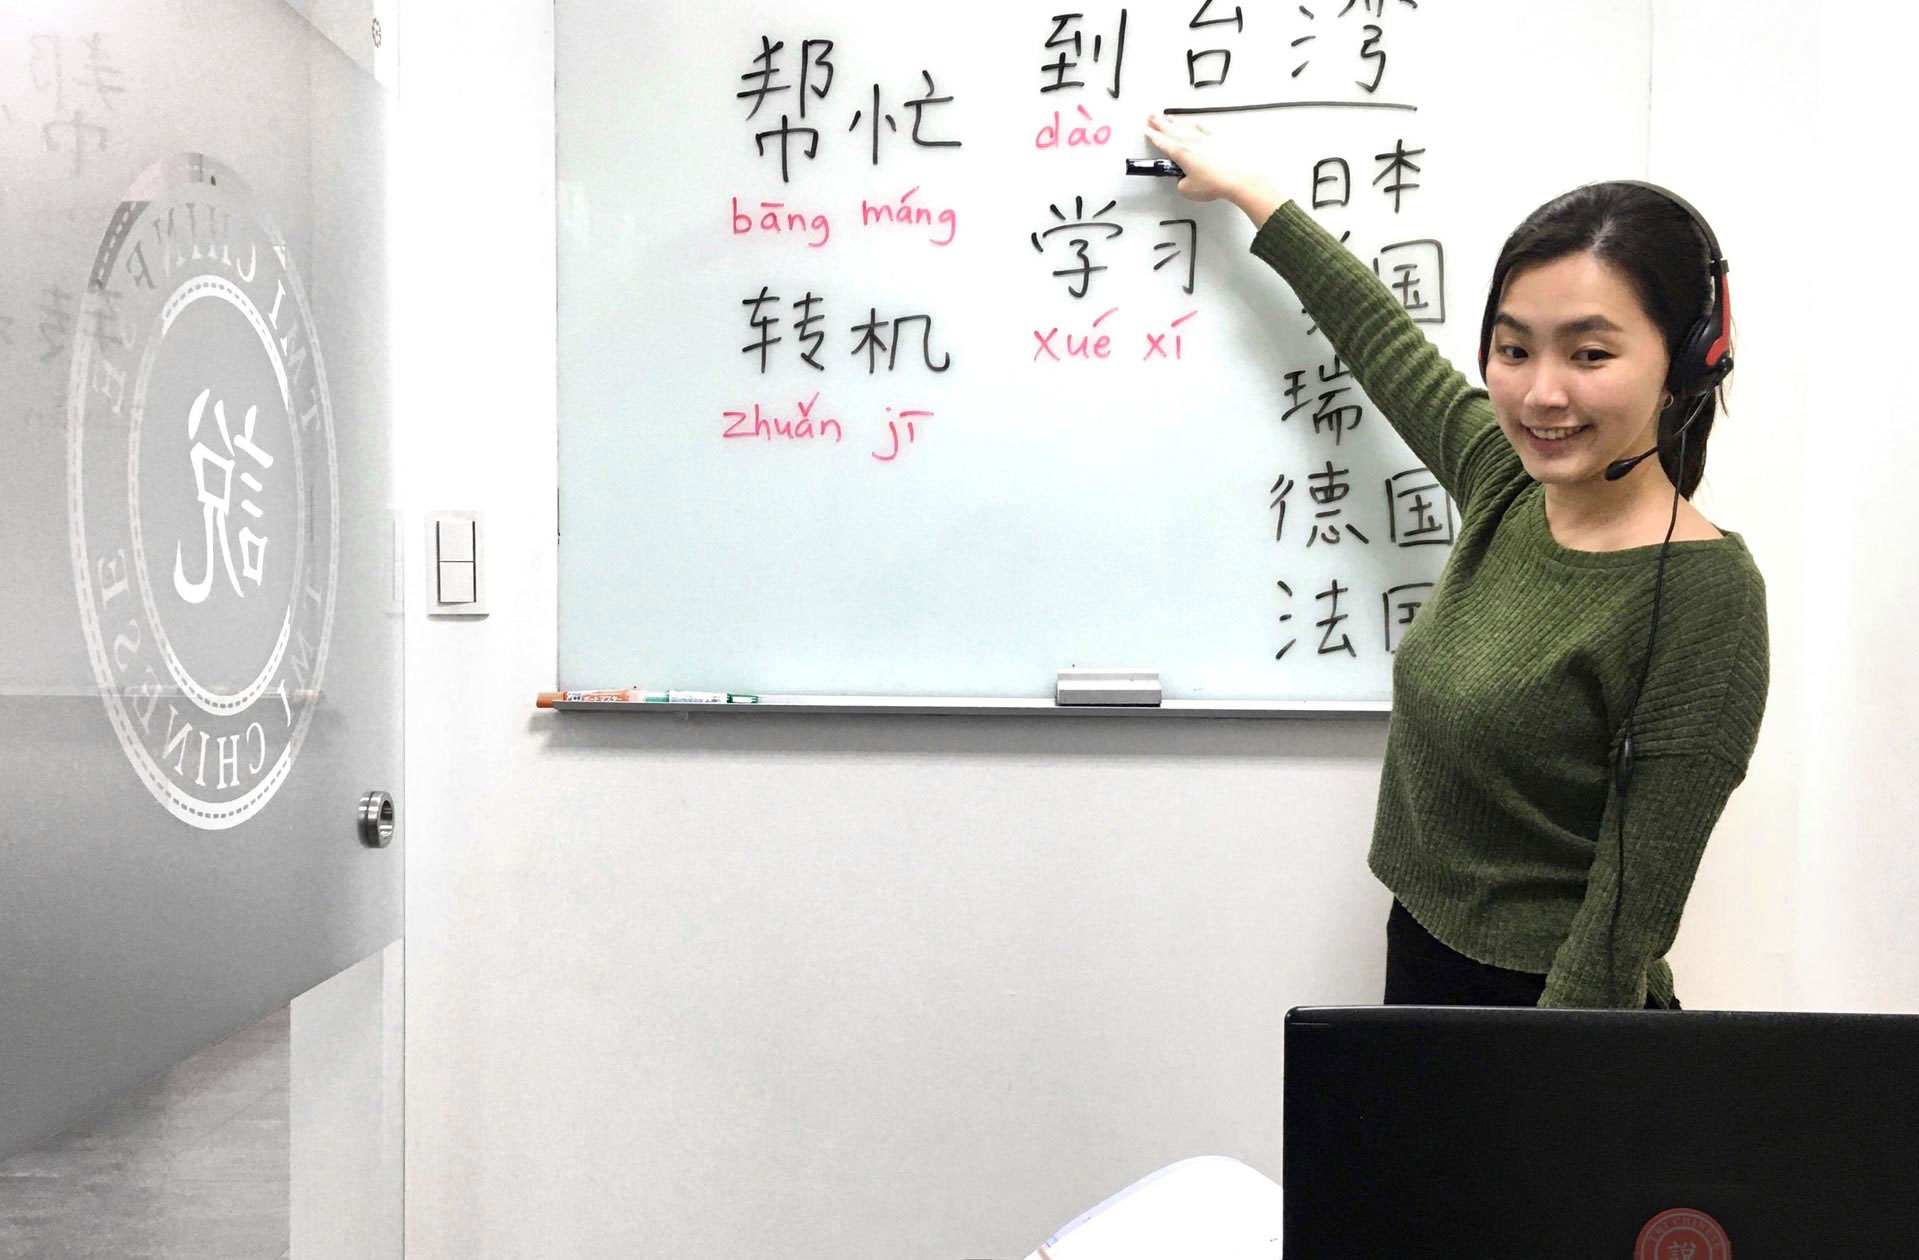 帮忙
bāng máng
转机
zhuǎn jī
到台湾
dào
学习
xué xí
日本
国
瑞
德国
法国
TMI CHINESE
說
TMI CHINESE
TMI CHINESE
說